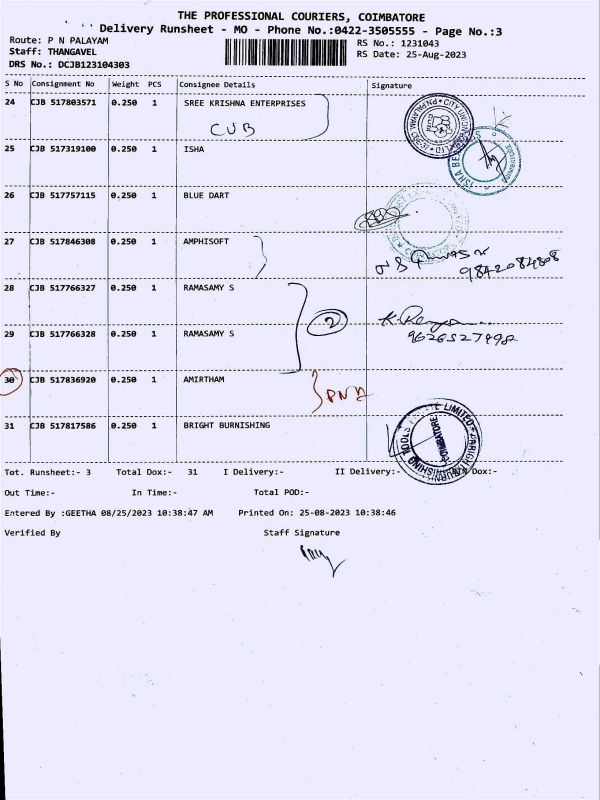 THE PROFESSIONAL COURIERS, COIMBATORE
Delivery Runsheet - MO - Phone No.:0422-3505555 - Page No.:3
Route: P N PALAYAM
RS No.: 1231043
Staff: THANGAVEL
RS Date: 25-Aug-2023
DRS No.: DCJB123104303
S No Consignment No Weight PCS Consignee Details Signature
24 CJB 517803571 0.250 1 SREE KRISHNA ENTERPRISES
CUB
25 CJB 517319100 0.250 1 ISHA
26 CJB 517757115 0.250 1 BLUE DART
27 CJB 517846308 0.250 1 AMPHISOFT
9842084808
28 CJB 517766327 0.250 1 RAMASAMY S
2
29 CJB 517766328 0.250 1 RAMASAMY S
9626527498
30 CJB 517836920 0.250 1 AMIRTHAM
31 CJB 517817586 0.250 1 BRIGHT BURNISHING
COIMBATORE
Tot. Runsheet:- 3 Total Dox:- 31 I Delivery:- II Delivery:- Dox:-
Out Time:- In Time:- Total POD:-
Entered By :GEETHA 08/25/2023 10:38:47 AM Printed On: 25-08-2023 10:38:46
Verified By Staff Signature